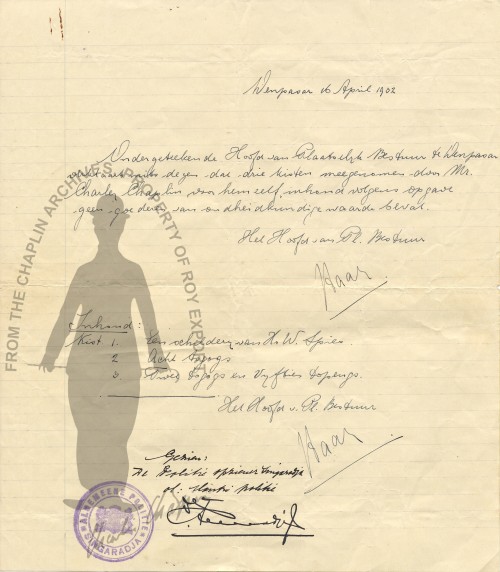 Denpasar 16 April 1932
Ondergeteekende Hoofd van Plaatselijk Bestuur te Denpasar
verklaart mits dezen dat drie kisten meegenomen door Mr.
Charley Chaplin van hemzelf, inhoud volgens opgave
geen goederen van oudheidkundige waarde bevat.
Het Hoofd van Pl. Bestuur
Haar
Inhoud:
Kist 1. Een schilderij van Hr W. Spies.
2 Acht
3. Twee en Vijftien topengs.
Het Hoofd v. Pl. Bestuur
Haar
Gezien:
De Politie opziener Singaradja
Mantri politie
ALGEMEENE POLITIE
SINGARADJA
FROM THE CHAPLIN ARCHIVES
PROPERTY OF ROY EXPORT